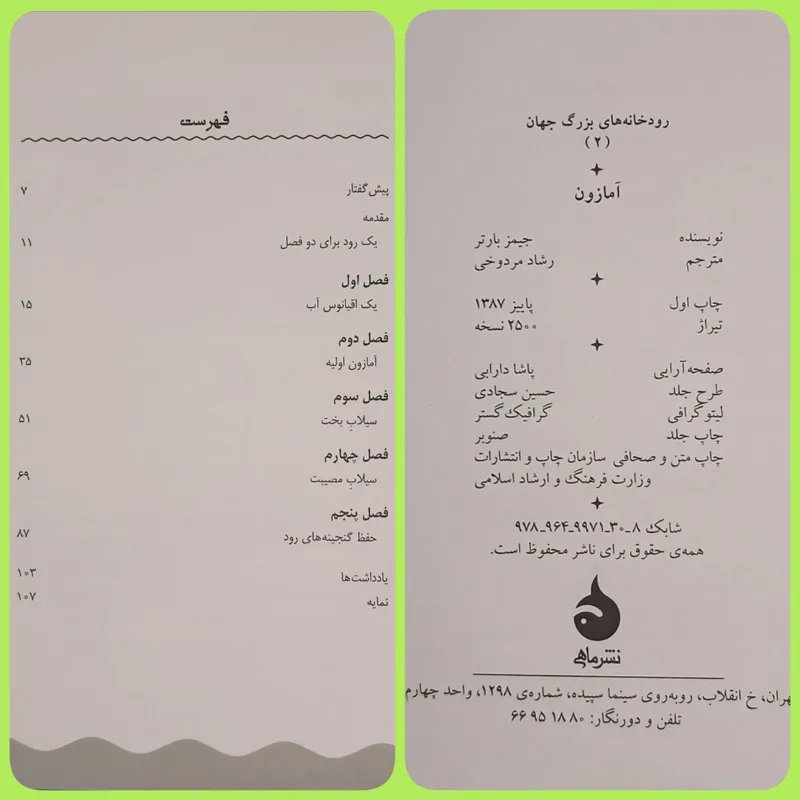 فهرست
پیش‌گفتار ۷
مقدمه
یک رود برای دو فصل ۱۱
فصل اول
یک اقیانوس آب ۱۵
فصل دوم
آمازون اولیه ۳۵
فصل سوم
سیلابِ بخت ۵۱
فصل چهارم
سیلابِ مصیبت ۶۹
فصل پنجم
حفظ گنجینه‌های رود ۸۷
یادداشت‌ها ۱۰۳
نمایه ۱۰۷
رودخانه‌های بزرگ جهان
(۲)
آمازون
نویسنده جیمز بارتر
مترجم رشاد مردوخی
چاپ اول پاییز ۱۳۸۷
تیراژ ۲۵۰۰ نسخه
صفحه‌آرایی پاشا دارابی
طرح جلد حسین سجادی
لیتوگرافی گرافیک‌گستر
چاپ جلد صنوبر
چاپ متن و صحافی سازمان چاپ و انتشارات
وزارت فرهنگ و ارشاد اسلامی
شابک ۸ـ۳۰ـ۹۹۷۱ـ۹۶۴ـ۹۷۸
همه‌ی حقوق برای ناشر محفوظ است.
نشر ماهی
هران، خ انقلاب، روبه‌روی سینما سپیده، شماره‌ی ۱۲۹۸، واحد چهارم
تلفن و دورنگار: ۸۰ ۱۸ ۹۵ ۶۶